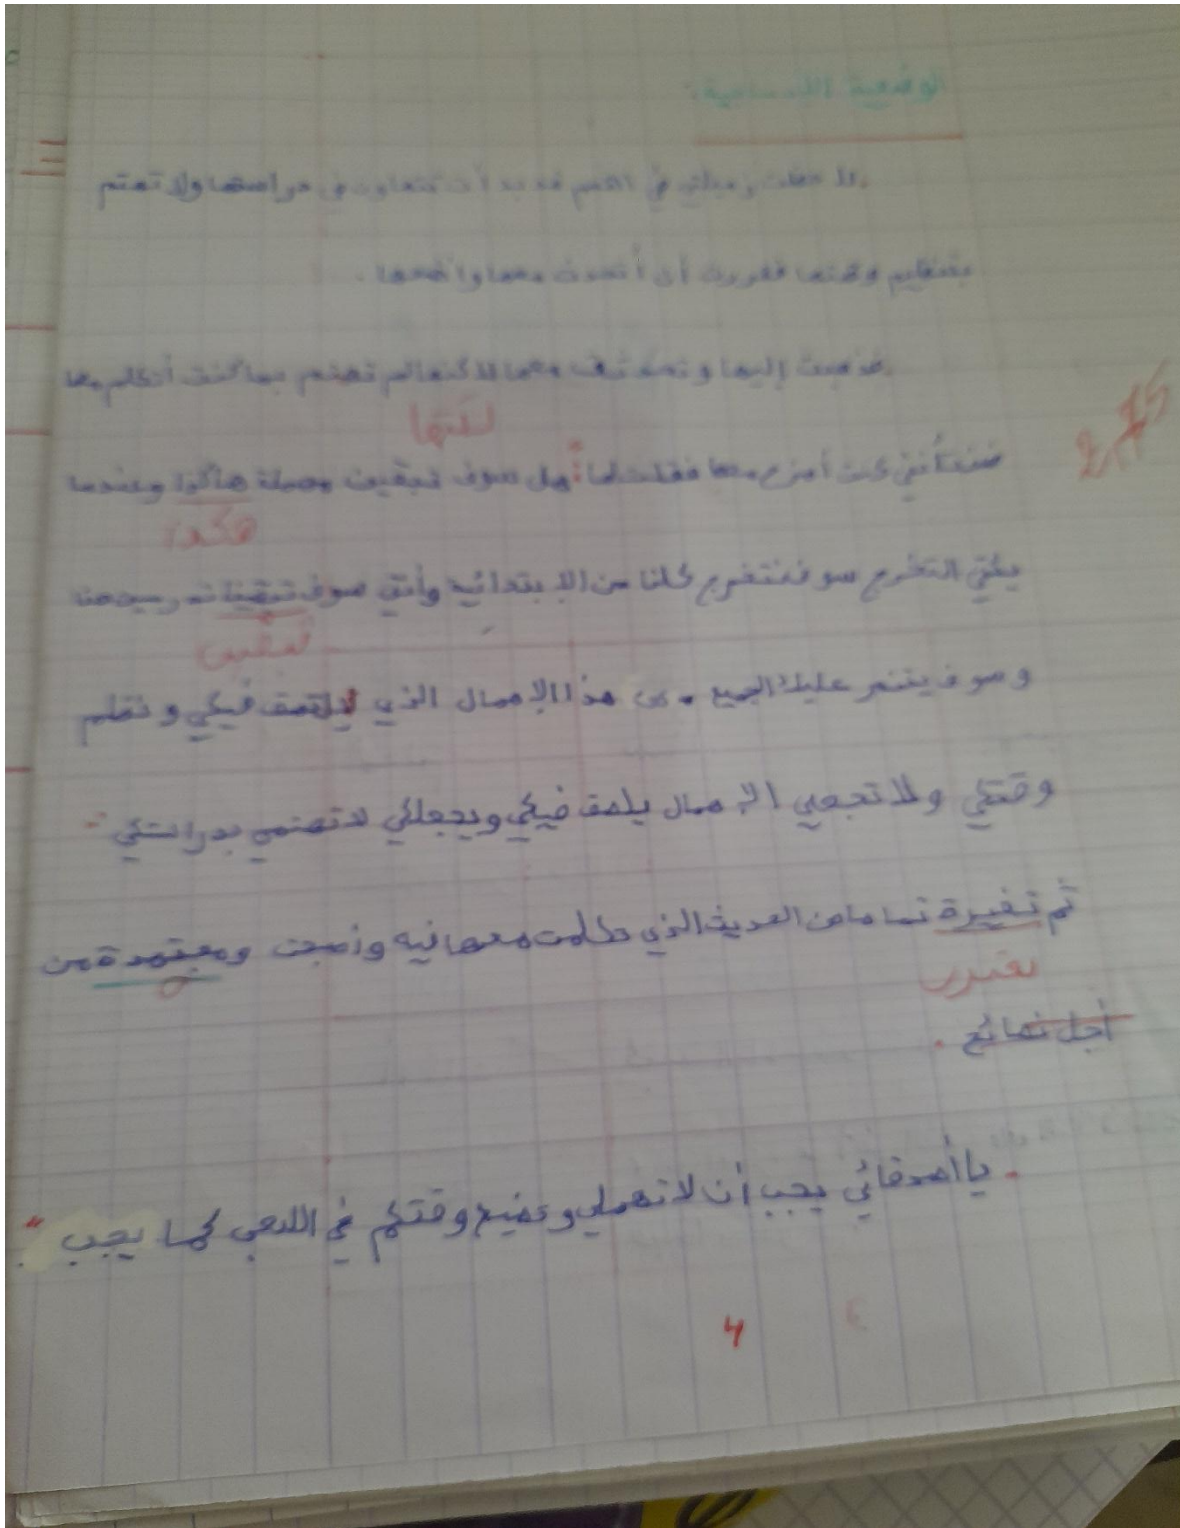 الوضعية الإدماجية:
لاحظت زميلتي في القسم في دراستها ولا تهتم
بتنظيم وقتها فقررت أن أتحدث معها وأنصحها .
فذهبت إليها وتحدثت معها لاكنها لم تهتم بما كنت أتكلم معها
لكنها
كنت أمزح معها فقلت لها: هل سوف تبقين مهملة هاكذا وعندما
هكذا
يأتي التخرج سوف نتخرج كلنا من الابتدائية وأنتي سوف تدرسين هنا
تبقين
وسوف يتنمر عليك الجميع . هذا الإهمال الذي يلتصق فيكي ونظم
وقتكي ولا تجعلي الإهمال يلصق فيكي ويجعلكي لا تهتمي بدراستكي
ثم تغيرة تماما من الحديث الذي تكلمت معها فيه وأصبحت ومجتهدة من
تغيرت
أجل نصائح .
يا أصدقائي يجب أن لا تهملي وتضيع وقتكم في اللعب كما يجب .
2,75
4